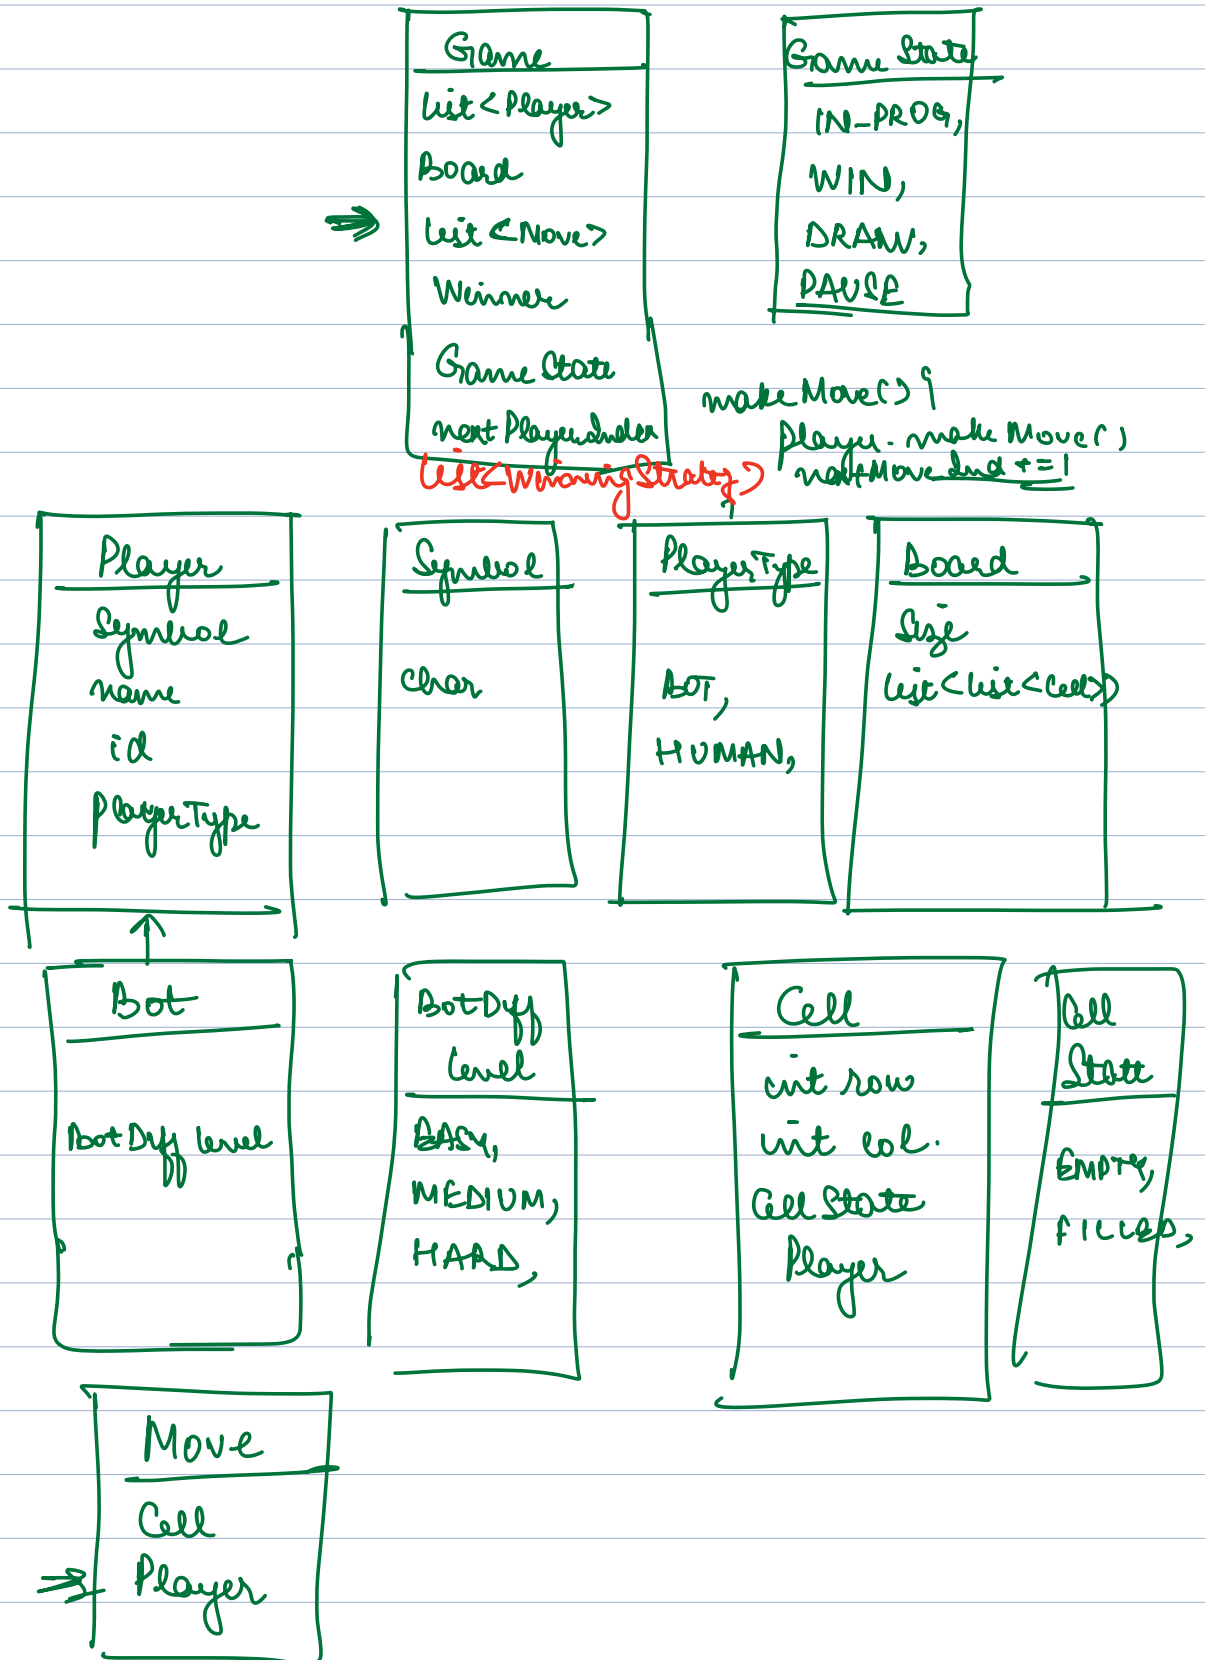 Game
List<Player>
Board
List<Move>
Winner
GameState
nextPlayerIndex
List<WinningStrategy>
Game State
IN_PROG,
WIN,
DRAW,
PAUSE
makeMove() {
Player.makeMove()
nextMoveInd +=1
Player
Symbol
name
id
PlayerType
Symbol
char
PlayerType
BOT,
HUMAN,
Board
Size
List<List<Cell>>
Bot
BotDiff level
BotDiff
level
EASY,
MEDIUM,
HARD,
Cell
int row
int col.
CellState
Player
Cell
State
EMPTY,
FILLED,
Move
Cell
Player